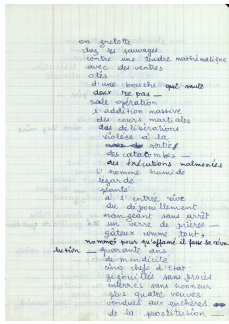 on grelotte
chez les sauvages
contre une tendre mathématique
avec des ventres
ôtés
d'une bouche qui saute
deux repas —
sale opération
l'addition massive
des cours martiales
des délibérations
violées à la
sortie
des catacombes —
des exécutions malmenées
l'homme humide
lézardé
planté
à l'entrée
du dépouillement
mangeant sans arrêt
un verre de prières —
gâteux comme tout
nommé pour qu'affamé il pose sa
quarante ans
de mendicité
cinq chefs d'état
zigouillés sans procès
enterrés sans honneur
plus quatre veuves
vendues aux enchères
de la prostitution —